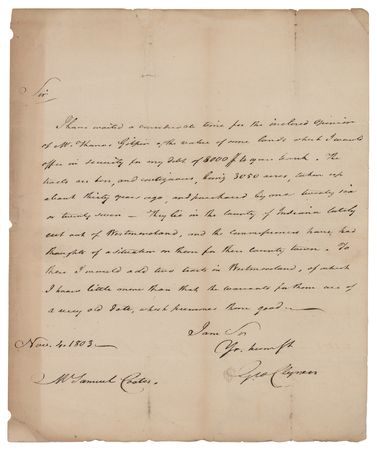 Sir
I have waited a considerable time for the inclosed Opinion
of Mr. Thomas Gilpin of the value of some lands which I would
offer in security for my debt of 8000 $ to your bank. The
tracts are ten, and contiguous, being 3050 acres, taken up
about thirty years ago, and purchased by me twenty six
or twenty seven — They lie in the county of Indiana lately
cut out of Westmoreland, and the commissioners have had
thoughts of a situation on them for their county town. To
these I would add two tracts in Westmoreland, of which
I know little more than that the warrants for them are of
a very old date, which presumes them good. —
I am Sir
Yr. hum St
Geo Clymer
Nov. 4. 1803. —
Mr Samuel Coates.